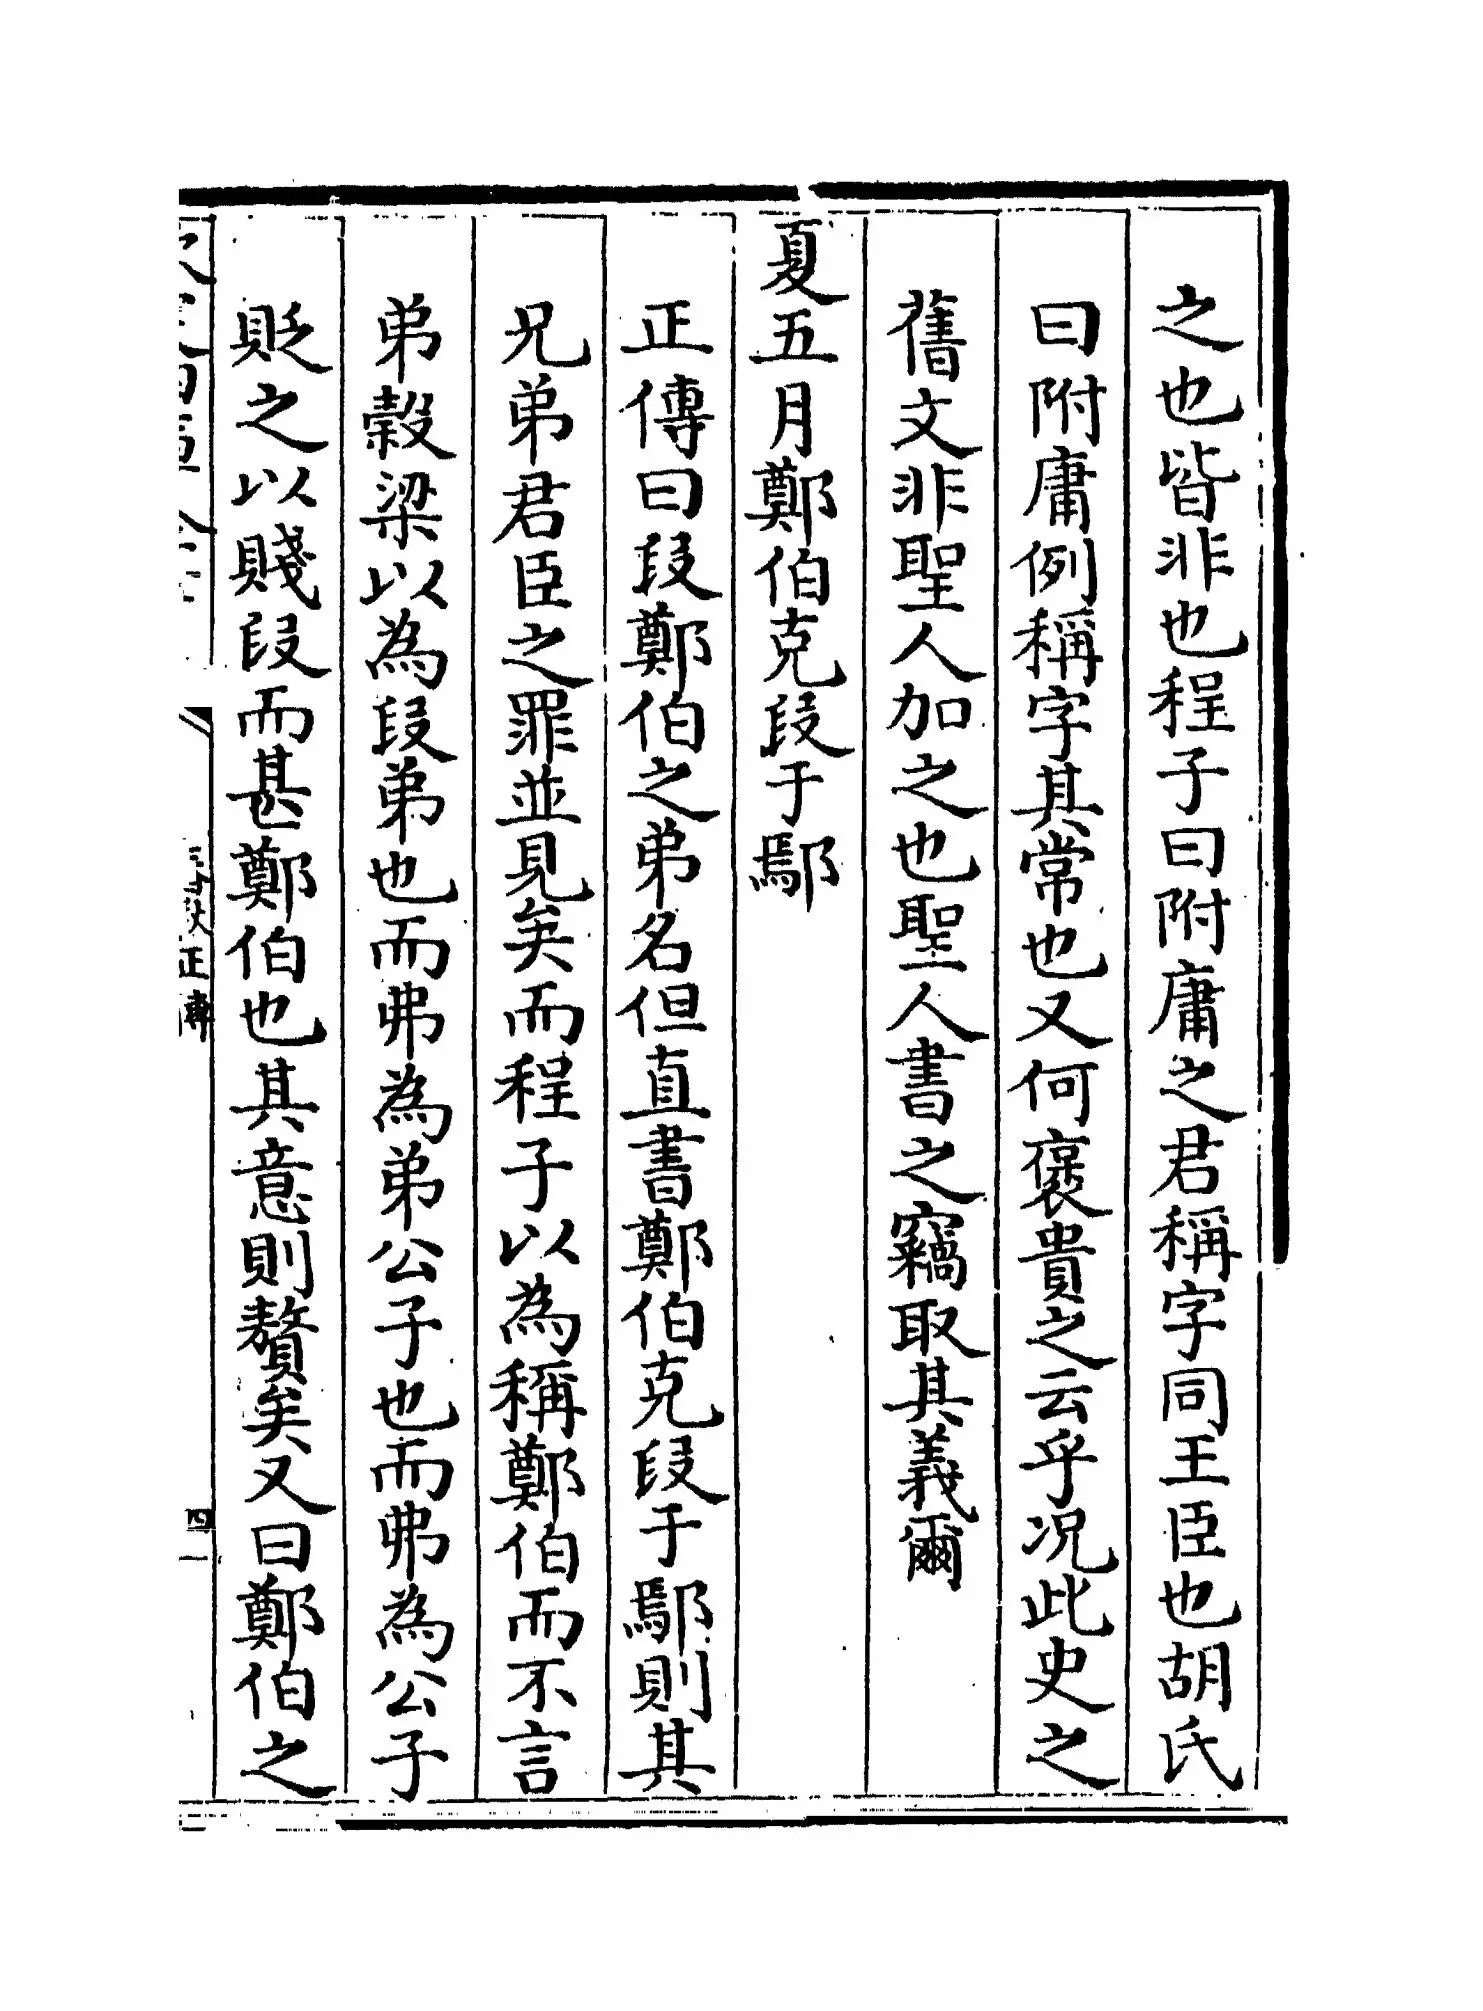 之也皆非也程子曰附庸之君稱字同王臣也胡氏
曰附庸例稱字其常也又何褒貴之云乎况此史之
舊文非聖人加之也聖人書之竊取其義爾
夏五月鄭伯克段于鄢
正傳曰段鄭伯之弟名但直書鄭伯克段于鄢則其
兄弟君臣之罪並見矣而程子以為稱鄭伯而不言
弟榖梁以為段弟也而弗為弟公子也而弗為公子
貶之以賤段而甚鄭伯也其意則贅矣又曰鄭伯之
春秋正傳
四